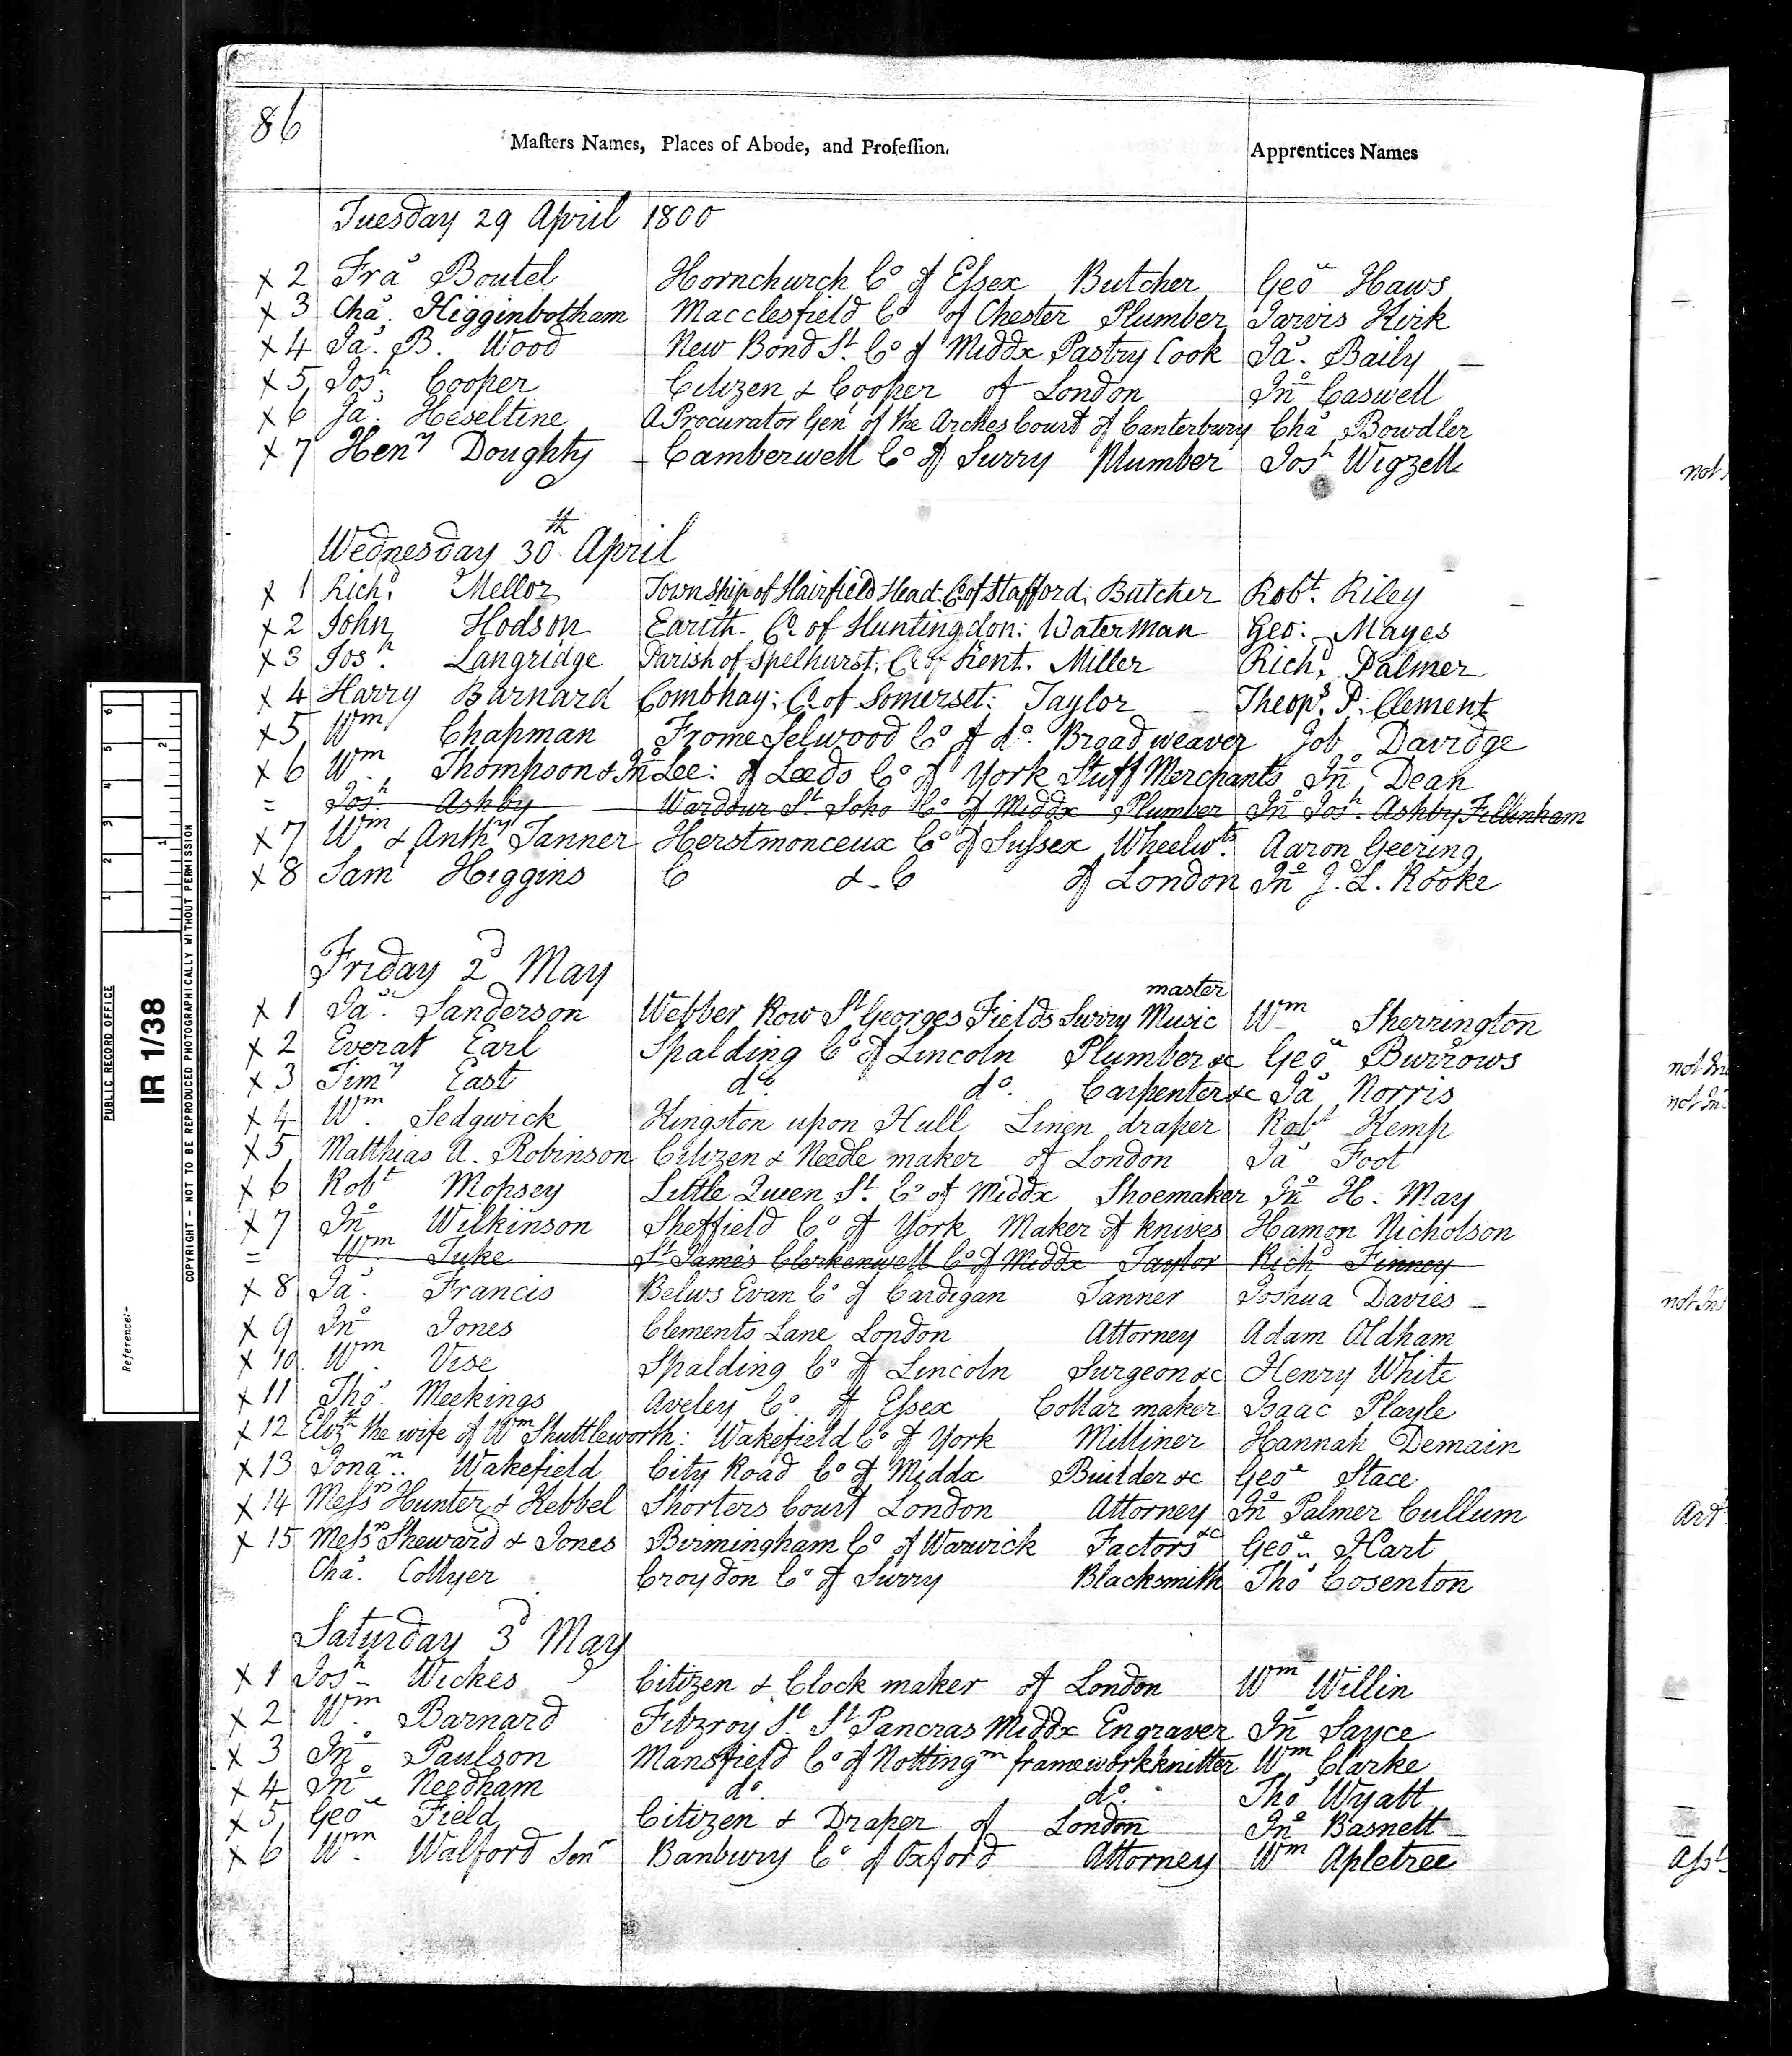 86
Maſters Names, Places of Abode, and Profeſſion. Apprentices Names
Tuesday 29 April 1800
x 2 Fras Boutel Hornchurch Co of Essex Butcher Geo Haws
x 3 Chas. Higginbotham Macclesfield Co of Chester Plumber Jarvis Kirk
x 4 Jas. B. Wood New Bond St. Co of Middx Pastry Cook Jas. Baily
x 5 Josh. Cooper Citizen & Cooper of London Jno Caswell
x 6 Jas. Heseltine A Procurator Genl of the Arches Court of Canterbury Chas Bowdler
x 7 Heny Doughty Camberwell Co of Surry Plumber Josh Wigzell
not
Wednesday 30th April
x 1 Richd. Mellor Township of Hairfield Head. Co. of Stafford: Butcher Robt. Riley
x 2 John Hodson Earith. Co. of Huntingdon: Waterman Geo: Mayes
x 3 Josh. Langridge Parish of Spelhurst. Co of Kent. Miller Richd. Palmer
x 4 Harry Barnard Combhay: Co. of Somerset: Taylor Theops. P. Clement
x 5 Wm Chapman Frome Selwood Co of do. Broad weaver Job Davidge
x 6 Wm. Thompson & Jno Lee: of Leeds Co of York Stuff Merchants Jno Dean
= Josh. Ashby Wardour St Soho Co of Middx Plumber Jno Josh. Ashby Fillinham
x 7 Wm & Anthy Tanner Herstmonceux Co of Sussex Wheelwts. Aaron Geering
x 8 Saml Higgins C &. C of London Jno J. L. Rooke
Friday 2d May
master
x 1 Jas. Sanderson Webber Row St Georges Fields Surry Music Wm Sherrington
x 2 Everat Earl Spalding Co of Lincoln Plumber &c Geo Burrows
not In
x 3 Timy East do. do. Carpenter &c Jas Norris
not In
x 4 Wm. Sedgwick Kingston upon Hull Linen draper Robt Kemp
x 5 Matthias A. Robinson Citizen & Needle maker of London Jas Foot
x 6 Robt Mopsey Little Queen St. Co of Middx Shoemaker Jno H. May
x 7 Jno Wilkinson Sheffield Co of York Maker of knives Hamon Nicholson
= Wm Tuke St James Clerkenwell Co of Middx Taylor Richd Finney
x 8 Jas. Francis Belws Evan Co of Cardigan Tanner Joshua Davies
not Ins
x 9 Jno Jones Clements Lane London Attorney Adam Oldham
x 10. Wm. Vise Spalding Co of Lincoln Surgeon &c Henry White
x 11 Thos. Meekings Aveley Co. of Essex Collar maker Isaac Playle
x 12 Elizth the wife of Wm Shuttleworth: Wakefield Co of York Milliner Hannah Demain
x 13 Jonan. Wakefield City Road Co of Middx Builder &c Geoe Stace
x 14 Messrs Hunter & Kebbel Shorters Court London Attorney Jno Palmer Cullum
Art
x 15 Messrs Sheward & Jones Birmingham Co of Warwick Factors &c Geoe. Hart
Chas. Collyer Croydon Co of Surry Blacksmith Thos Cosenton
Saturday 3d May
x 1 Josh Wickes Citizen & Clock maker of London Wm Willin
x 2 Wm. Barnard Fitzroy St. St Pancras Middx Engraver Jno Sayce
x 3 Jno Paulson Mansfield Co of Nottingm frameworkknitter Wm Clarke
x 4 Jno Needham do. do. Thos Wyatt
x 5 Geoe Field Citizen & Draper of London Jno Basnett
x 6 Wm. Walford Senr Banbury Co of Oxford Attorney Wm Apletree
Asst
PUBLIC RECORD OFFICE
IR 1/38
Reference:-
COPYRIGHT - NOT TO BE REPRODUCED PHOTOGRAPHICALLY WITHOUT PERMISSION
1 2 3 4 5 6
1 2